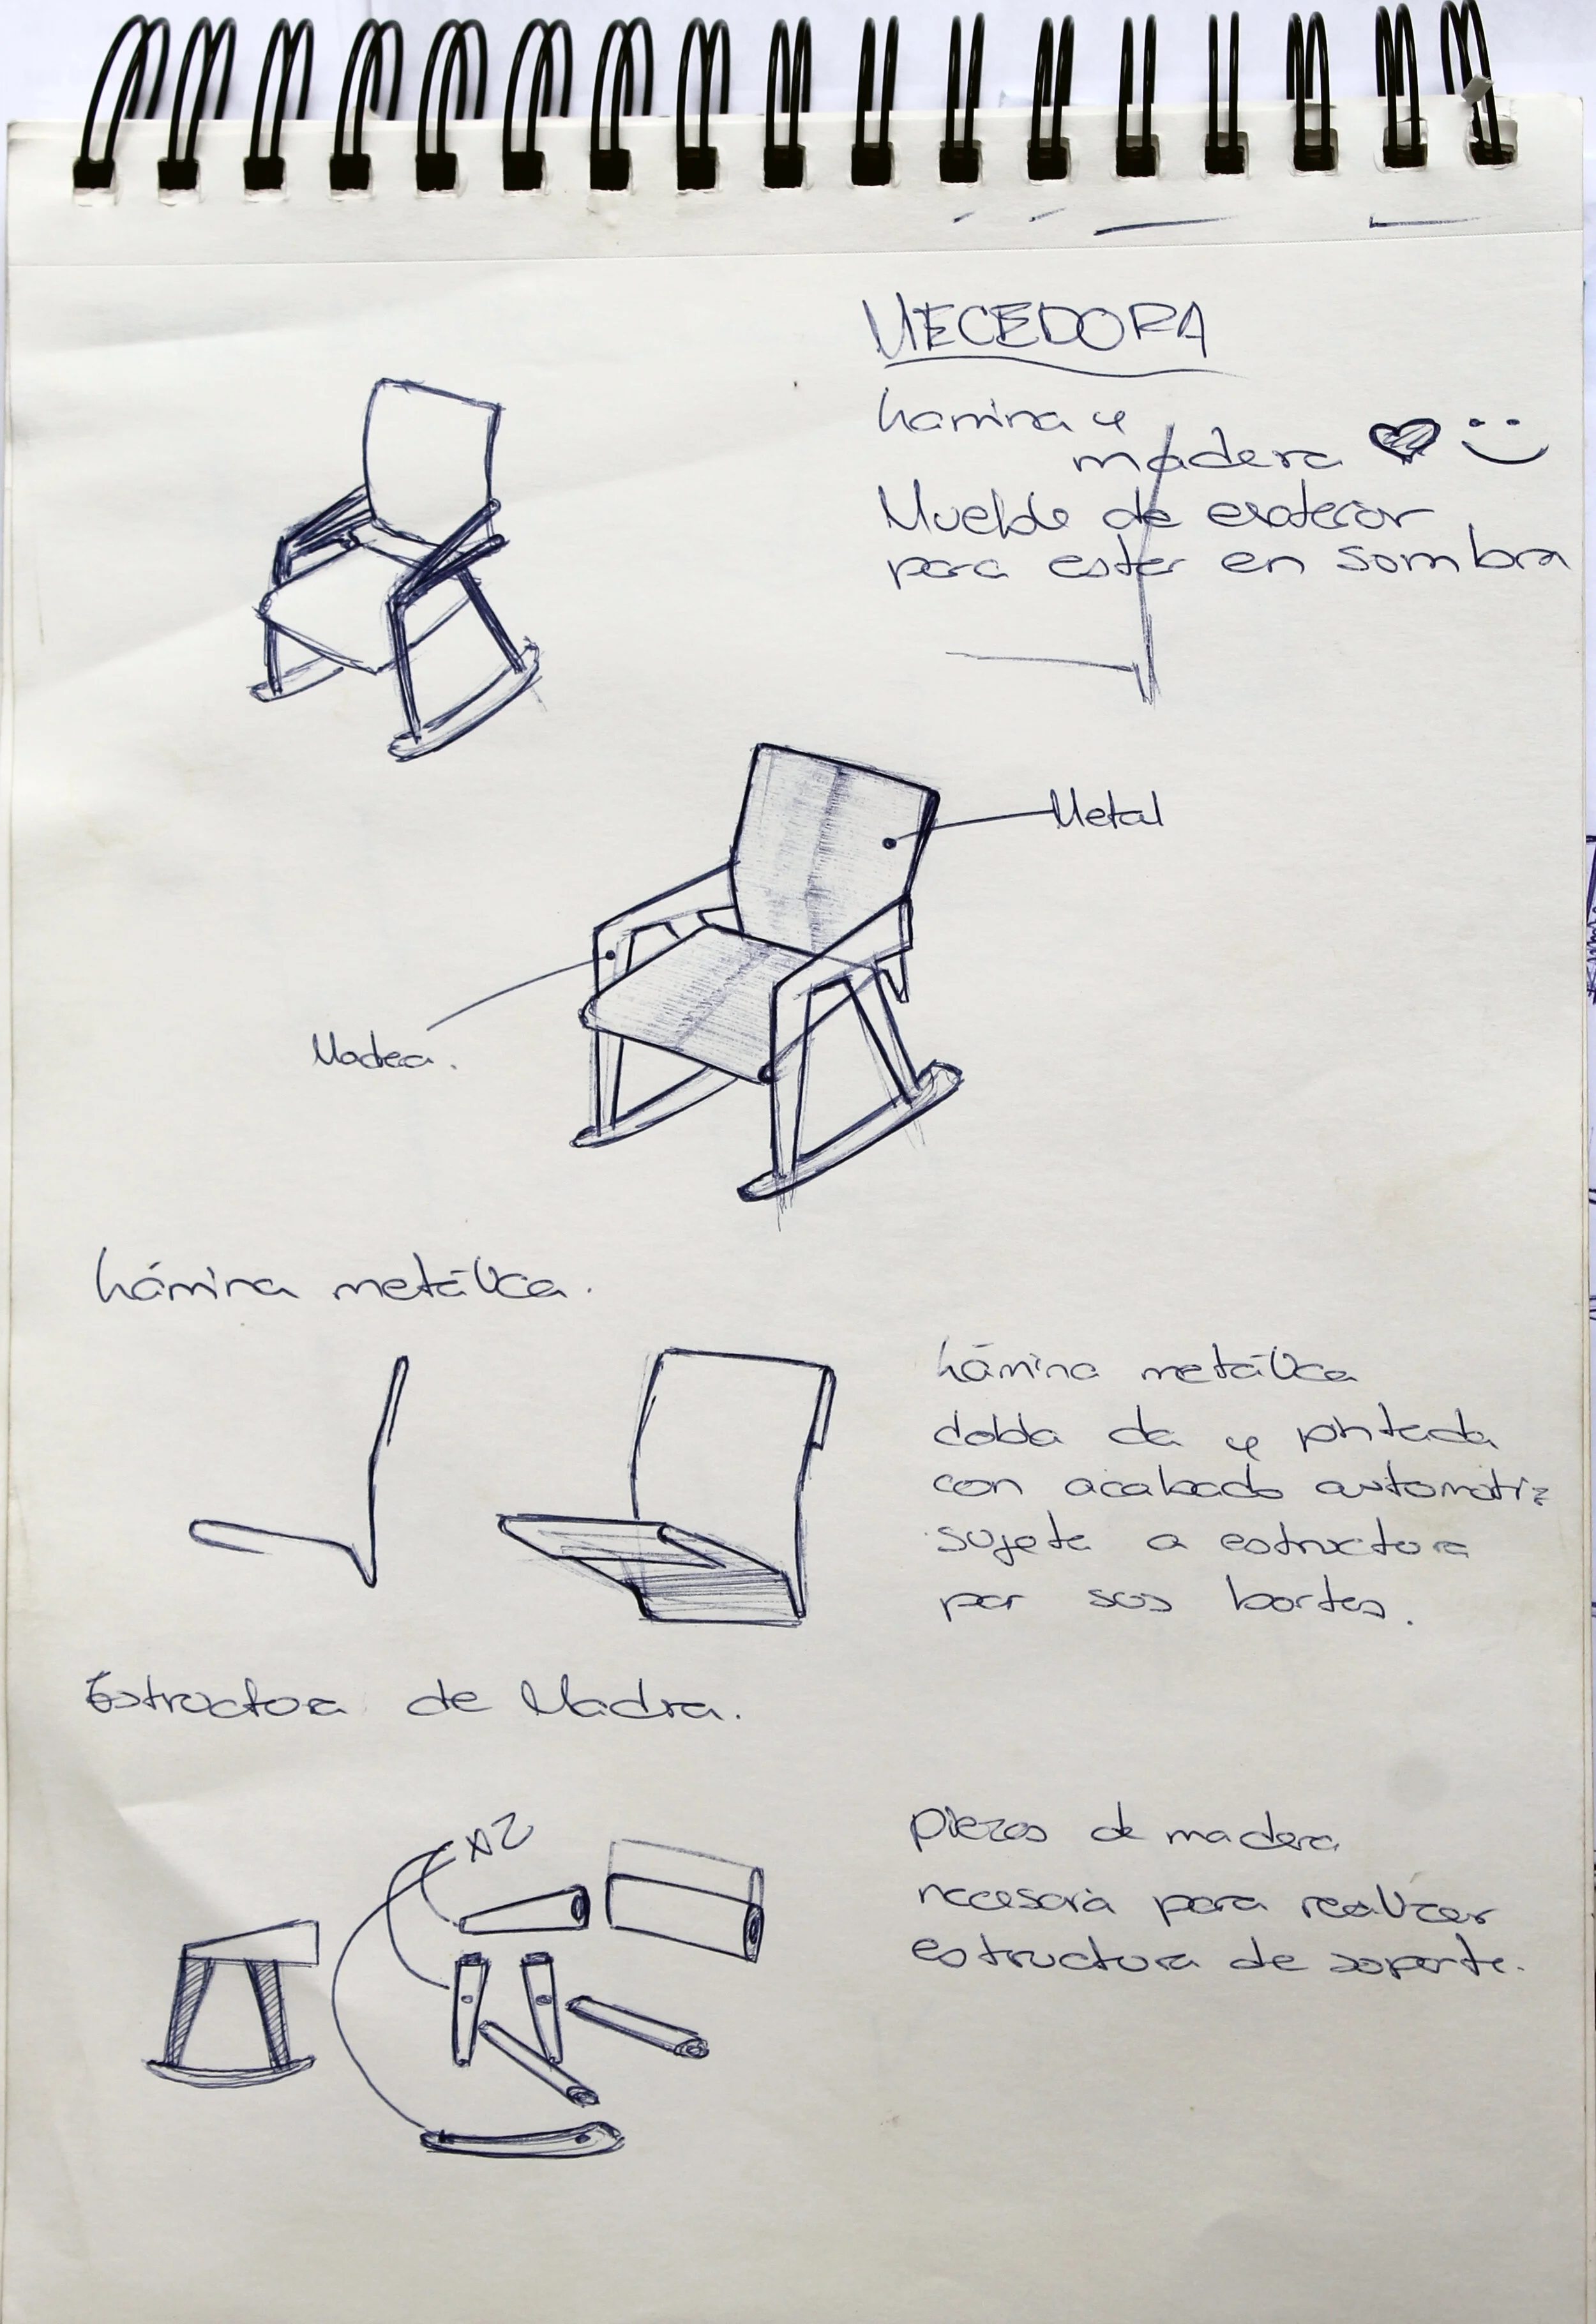 MECEDORA
Lamina y
madera
Mueble de exterior
para estar en sombra
Metal
Madea.
Lámina metálica.
Lámina metálica
dobla da y pintada
con acabado automotriz
sujeta a estructura
por sus bortes.
Estructura de Madra.
x2
piezas de madera
necesaria para realizar
estructura de soporte.